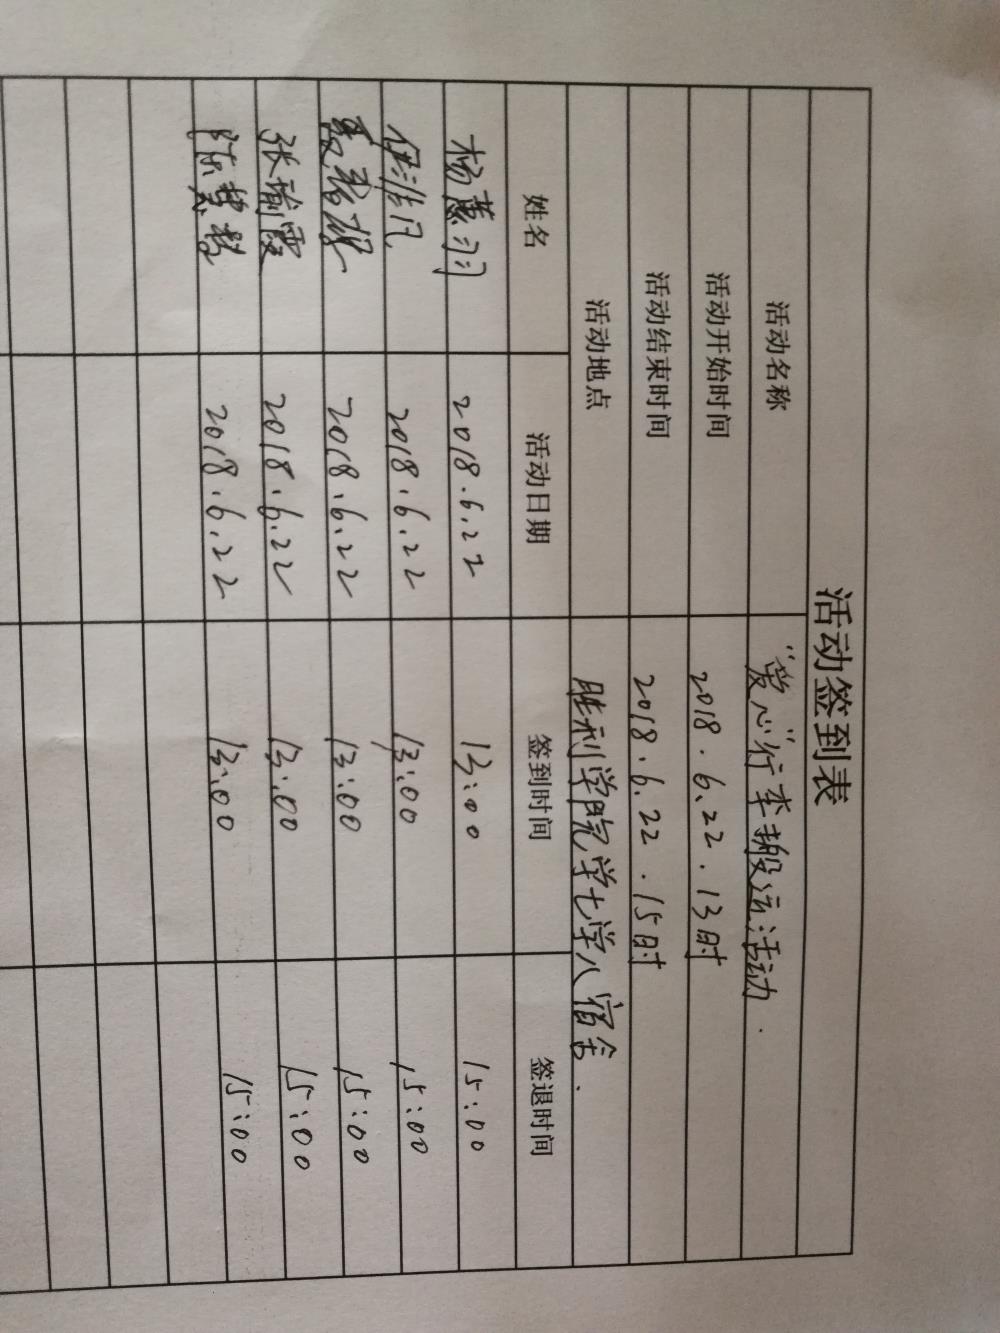 活动签到表
活动名称 “爱心”行李搬运活动.
活动开始时间 2018.6.22.13时
活动结束时间 2018.6.22.15时
活动地点 胜利学院学七学八宿舍.
姓名 活动日期 签到时间 签退时间
杨惠 2018.6.22 13:00 15:00
伊 2018.6.22 13:00 15:00
2018.6.22 13:00 15:00
张瑜霞 2018.6.22 13:00 15:00
陈 2018.6.22 13:00 15:00